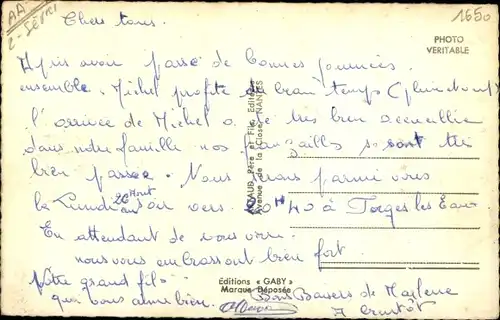 Chers tous.
1650
PHOTO
VERITABLE
Après avoir passé de bonnes journées
ensemble. Michel profite du beau temps
l'arrivée de Michel a été très bien accueillie
dans notre famille nos fiançailles se sont très
bien passées. Nous serons parmi vous
le Lundi 26 Août soir vers 20H40 à Forges les Eaux
En attendant de vous voir
nous vous embrassons bien fort
Votre grand fils
qui vous aime bien.
Bons Baisers de Marlène
A bientôt
Éditions « GABY »
Marque Déposée
Père et Fils, Éditeurs
Avenue de la Close, NANTES